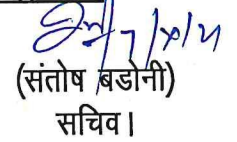 7/x/21
(संतोष बडोनी)
सचिव।